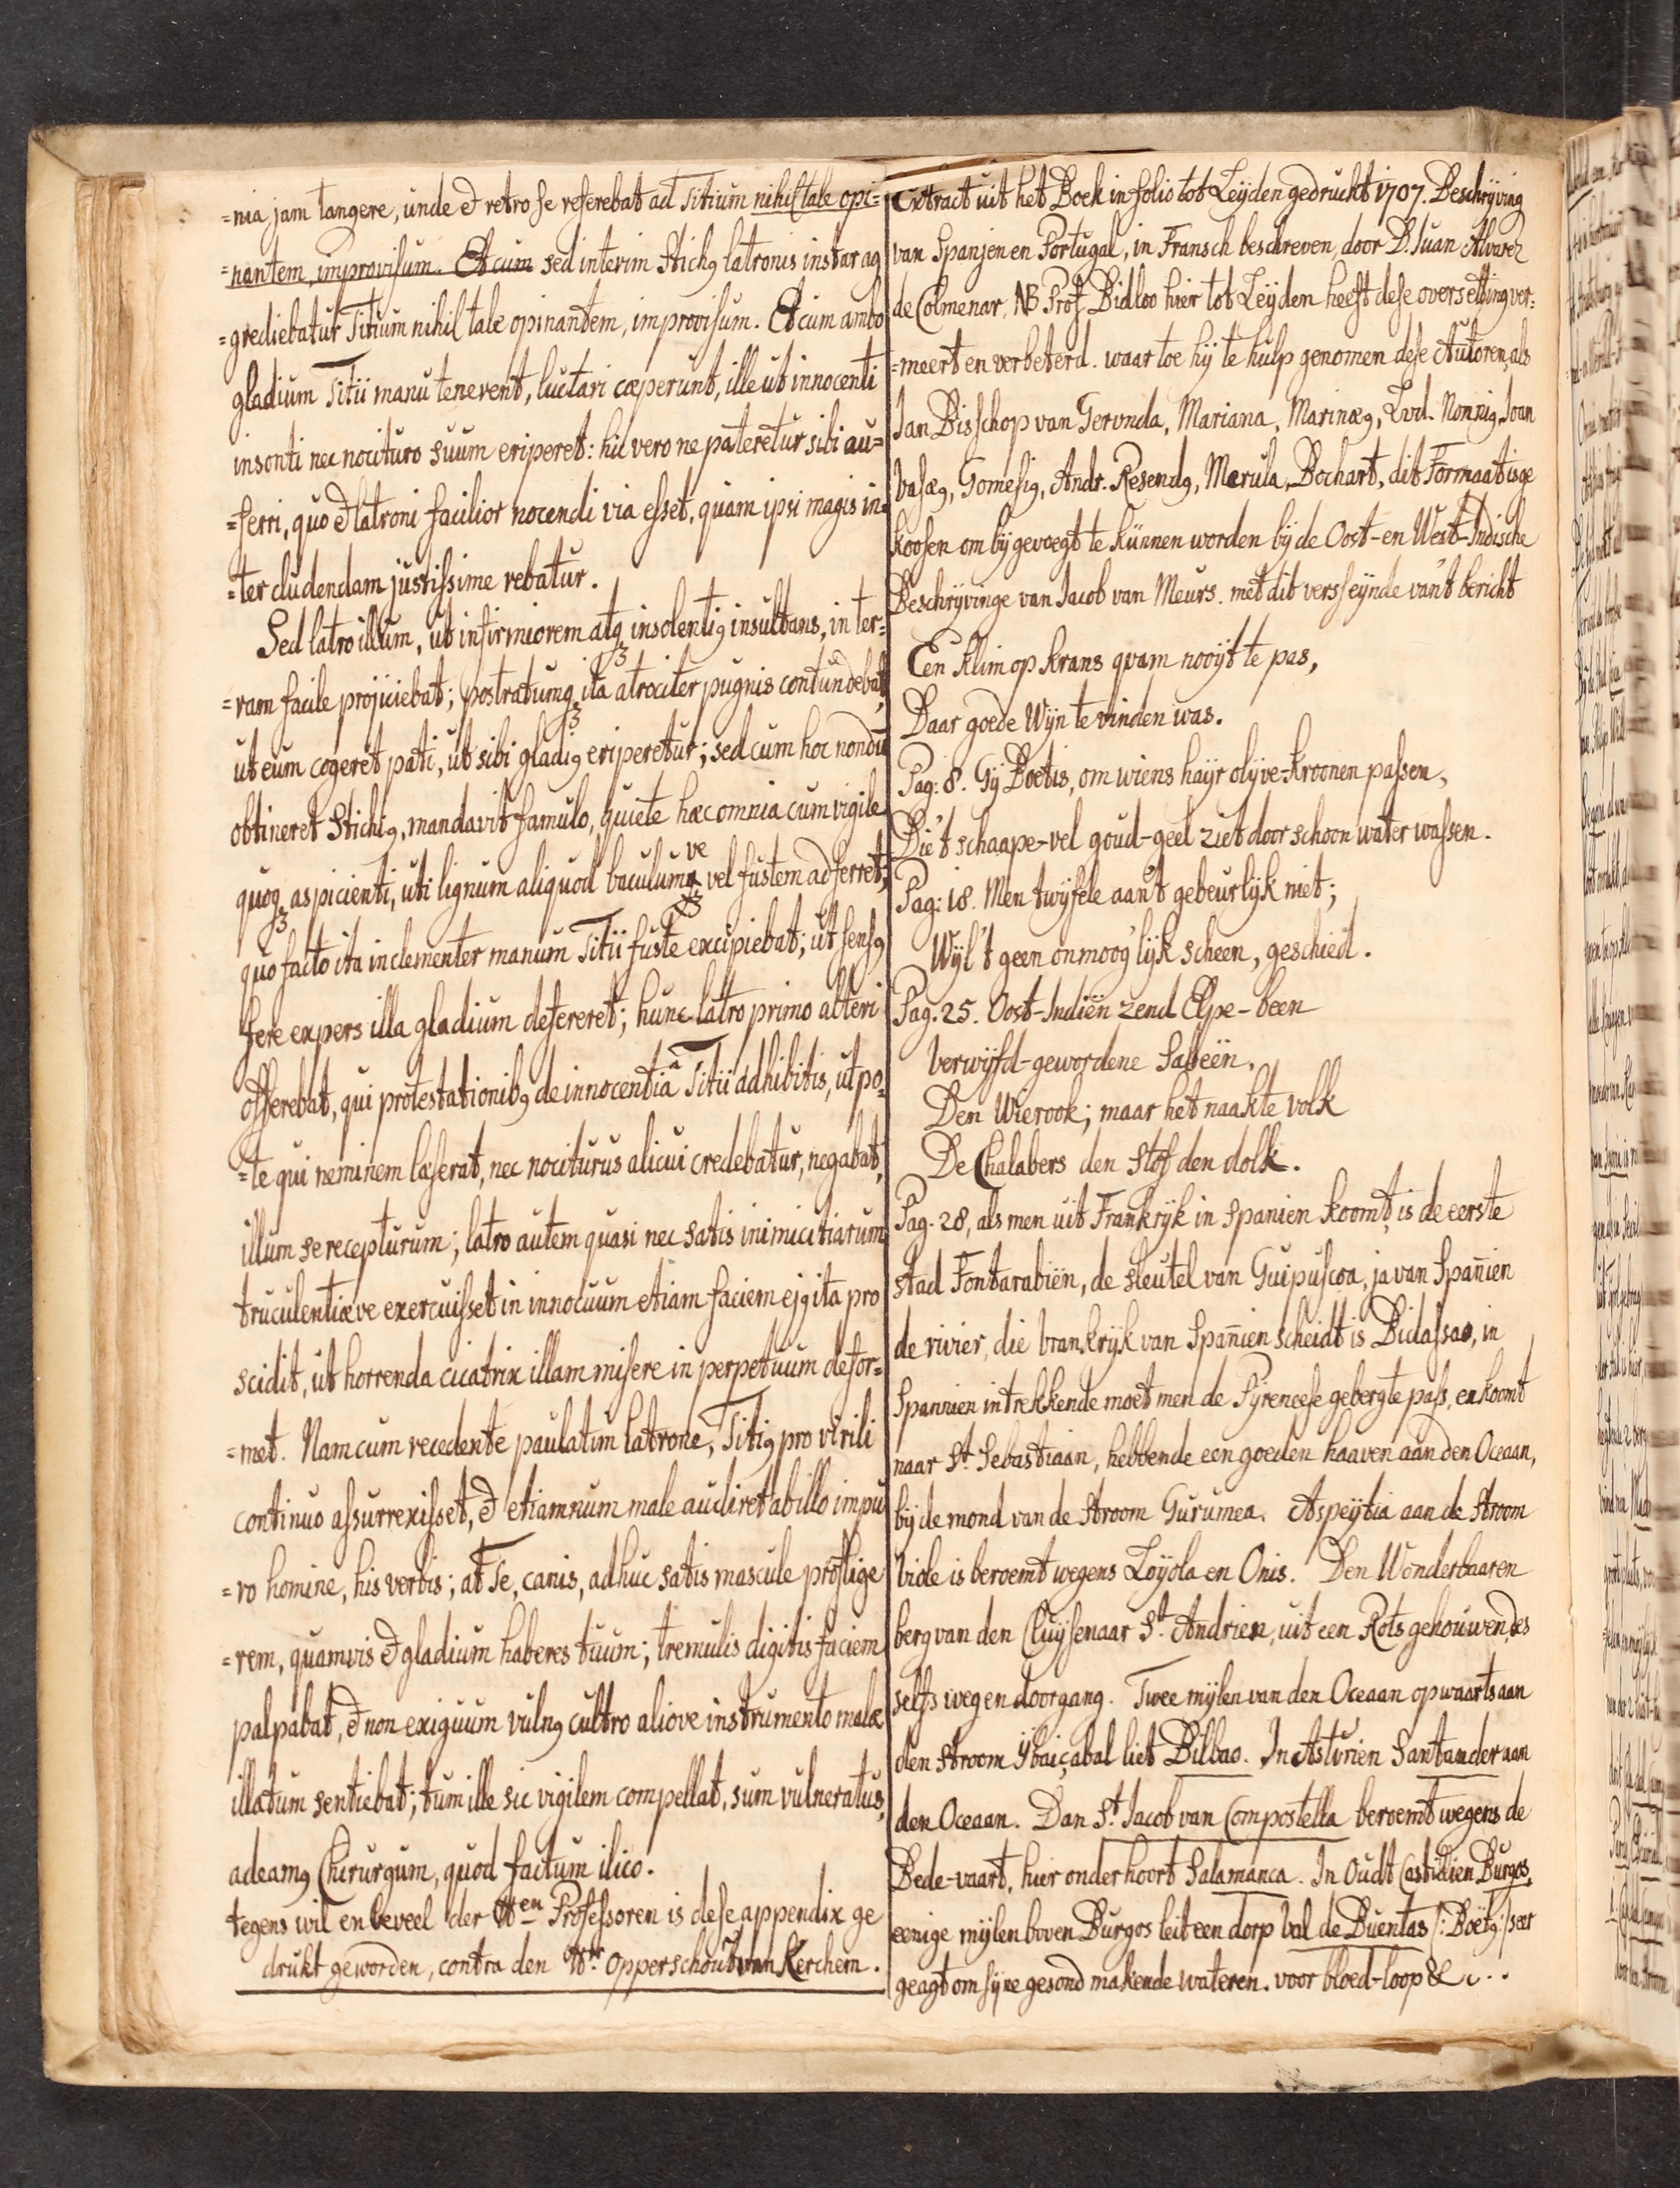 =nia jam tangere, unde & retro se referebat ad Titium nihil tale opi=
=nantem, improvisum. Et cum sed interim Stichꝰ latronis instar ag
=grediebatur Titium nihil tale opinantem, improvisum. Et cum ambo
gladium Titii manu tenerent, luctari cæperunt, ille ut innocenti
insonti nec nocituro suum eriperet: hic vero ne pateretur sibi au=
=ferri, quo & latroni facilior nocendi via esset, quam ipsi magis in=
=tercludendam justissime rebatur.
Sed latro illum, ut infirmiorem atqꝫ insolentiꝰ insultans, in ter=
=ram facile projiciebat; postratumqꝫ ita atrociter pugnis contundebat,
ut eum cogeret pati, ut sibi gladiꝰ eriperetur; sed cum hoc nondū
obtineret Stichꝰ, mandavit famulo, quiete hæc omnia cum vigile
quoqꝫ aspicienti, uti lignum aliquod baculumve vel fustem adferret;
quo facto ita inclementer manum Titii fuste excipiebat; ut sensꝰ
fere expers illa gladium desereret; hunc latro primo alteri
offerebat, qui protestationibꝰ de innocentia a Titii adhibitis, utpo=
=te qui neminem læserat, nec nociturus alicui credebatur, negabat,
illum se recepturum; latro autem quasi nec satis inimicitiarum
truculentiæve exercuisset in innocuum etiam faciem ejꝰ ita pro
scidit, ut horrenda cicatrix illam misere in perpetuum defor=
=met. Nam cum recedente paulatim latrone, Titiꝰ pro virili
continuo assurrexisset, & etiamnum male audiret ab illo impu
=ro homine, his verbis; at Te, canis, adhuc satis mascule proflige
=rem, quamvis & gladium haberes tuum; tremulis digitis faciem
palpabat, & non exiguum vulnꝰ cultro aliove instrumento malæ
illatum sentiebat; tum ille sic vigilem compellat, sum vulneratus,
adeamꝰ Chirurgum, quod factum ilico.
tegens wil en beveel der Wen Professoren is dese appendix ge
drukt geworden, contra den Wr opperschout van Kerchem.
Extract uit het Boek in folio tot Leijden gedruckt 1707. Beschrijving
van Spanjen en Portugal, in Fransch beschreven, door D. Juan Alvarez
de Colmenar, NB Prof Bidloo hier tot Leijden heeft dese oversetting ver=
=meert en verbeterd. waar toe hij te hulp genomen dese Autoren, als
Jan Bisschop van Gerunda, Mariana, Marinæꝰ, Lud. Nonniꝰ, Joan
Vasæꝰ, Gomesiꝰ, Andr. Resendꝰ, Merula, Bochart, dit Formaat is ge
koosen om bijgevoegt te kunnen worden bij de Oost- en West-Indische
Beschrijvinge van Jacob van Meurs. met dit vers eijnde van't bericht
Een klimop krans quam nooijt te pas,
Daar goede Wijn te vinden was.
Pag: 8. Gij Boetis, om wiens hayr olijve-kroonen passen,
Die't schaape-vel goud-geel ziet door schoon water wassen.
Pag: 18. Men twijfele aan't gebeurlijk niet;
Wijl 't geen onmoog'lijk scheen, geschied.
Pag. 25. Oost-Indiën zend Elpe-been
verwijfd-gewordene Sabeën,
Den Wierook; maar het naakte volk
De Chalabers den stof den dolk.
Pag. 28, als men uit Frankrijk in Spanien koomt, is de eerste
stad Fontarabiën, de sleutel van Guipuscoa, ja van Spañien
de rivier, die vrankrijk van Spañien scheidt is Bidassao, in
Spannien intrekkende moet men de Pyreneese gebergte pass, en koomt
naar St. Sebastiaan, hebbende een goeden haaven aan den Oceaan,
bij de mond van de stroom Gurumea. Aspeijtia aan de stroom
viole is beroemt wegens Loijola en Onis. Den Wonderbaaren
berg van den Cluijsenaar St. Andrien, uit een Rots gehouwen, des
selfs wegen doorgang. Twee mijlen van den Oceaan opwaarts aan
den stroom Ybaiçabal liet Bilbao. In Asturien Santander aan
den Oceaan. Dan St. Jacob van Compostella beroemt wegens de
Bede-vaart, hier onder hoort Salamanca. In Oudt Castilien Burgos,
eenige mijlen boven Burgos leit een dorp Val de Buentas /: Boëtꝰ:/ seer
geagt om sijne gesond makende wateren. voor bloed-loop &c...